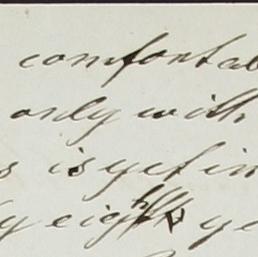 comfortab
only with
s is yet in
y eighth ye